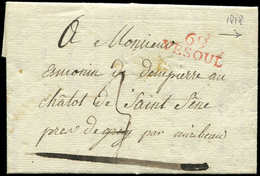 1818
69
VESOUL
A Monsieur
amonin de delapierre au
châtot de Saint Sêne
près de gray par mirbeau
3